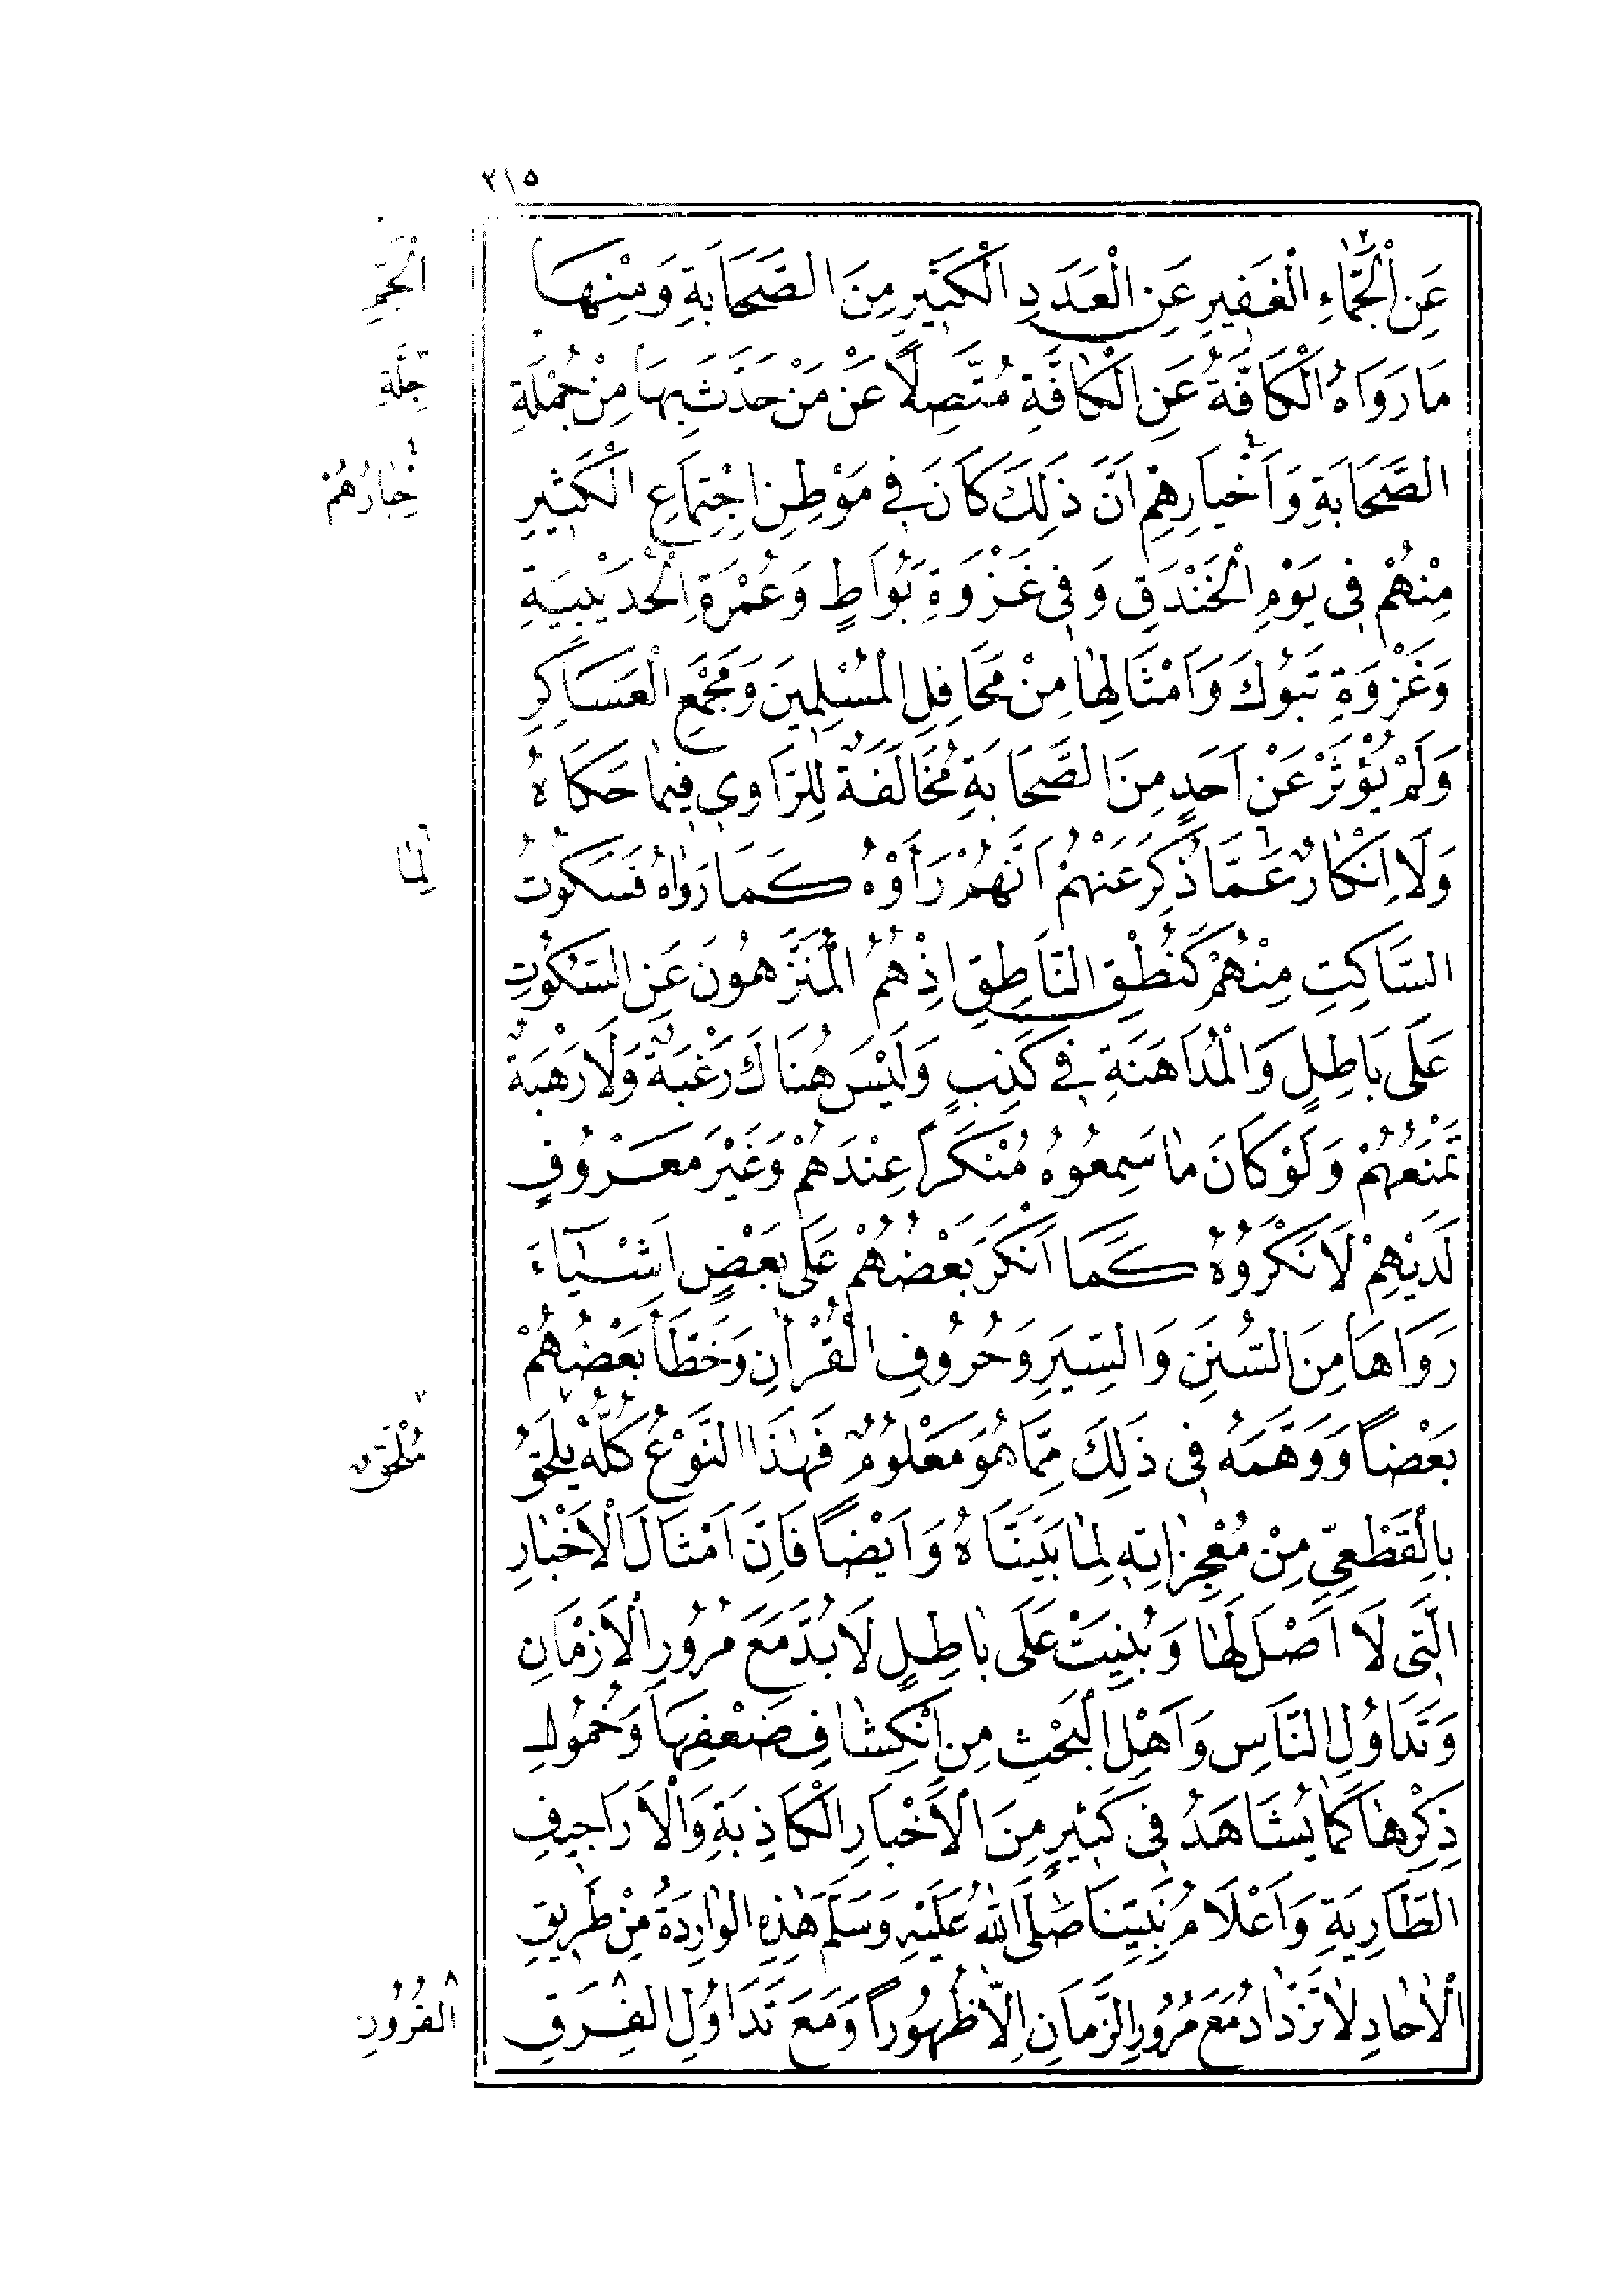 ٢١٥
عَنِ الْجَمَّاءِ الْغَفِيرِ عَنِ الْعَدَدِ الْكَثِيرِ مِنَ الصَّحَابَةِ وَمِنْهَا
مَا رَوَاهُ الْكَافَّةُ عَنِ الْكَافَّةِ مُتَّصِلًا عَنْ مَنْ حَدَّثَ بِهَا مِنْ جُمْلَةِ
الصَّحَابَةِ وَأَخْبَارِهِمْ أَنَّ ذَلِكَ كَانَ فِي مَوْطِنِ اجْتِمَاعِ الْكَثِيرِ
مِنْهُمْ فِي يَوْمِ الْخَنْدَقِ وَفِي غَزْوَةِ بُوَاطٍ وَعُمْرَةِ الْحُدَيْبِيَةِ
وَغَزْوَةِ تَبُوكَ وَأَمْثَالِهَا مِنْ مَحَافِلِ الْمُسْلِمِينَ وَمَجْمَعِ الْعَسَاكِرِ
وَلَمْ يُؤْثَرْ عَنْ أَحَدٍ مِنَ الصَّحَابَةِ مُخَالَفَةٌ لِلرَّاوِي فِيمَا حَكَاهُ
وَلَا إِنْكَارٌ عَمَّا ذُكِرَ عَنْهُمْ أَنَّهُمْ رَأَوْهُ كَمَا رَوَاهُ فَسُكُوتُ
السَّاكِتِ مِنْهُمْ كَنُطْقِ النَّاطِقِ إِذْ هُمُ الْمُنَزَّهُونَ عَنِ السُّكُوتِ
عَلَى بَاطِلٍ وَالْمُدَاهَنَةِ فِي كَذِبٍ وَلَيْسَ هُنَاكَ رَغْبَةٌ وَلَا رَهْبَةٌ
تَمْنَعُهُمْ وَلَوْ كَانَ مَا سَمِعُوهُ مُنْكَرًا عِنْدَهُمْ وَغَيْرَ مَعْرُوفٍ
لَدَيْهِمْ لَأَنْكَرُوهُ كَمَا أَنْكَرَ بَعْضُهُمْ عَلَى بَعْضٍ أَشْيَاءَ
رَوَاهَا مِنَ السُّنَنِ وَالسِّيَرِ وَحُرُوفِ الْقُرْآنِ وَخَطَّأَ بَعْضُهُمْ
بَعْضًا وَوَهَّمَهُ فِي ذَلِكَ مِمَّا هُوَ مَعْلُومٌ فَهَذَا النَّوْعُ كُلُّهُ يُلْحَقُ
بِالْقَطْعِيِّ مِنْ مُعْجِزَاتِهِ لِمَا بَيَّنَّاهُ وَأَيْضًا فَإِنَّ أَمْثَالَ الْأَخْبَارِ
الَّتِي لَا أَصْلَ لَهَا وَبُنِيَتْ عَلَى بَاطِلٍ لَا بُدَّ مَعَ مُرُورِ الْأَزْمَانِ
وَتَدَاوُلِ النَّاسِ وَأَهْلِ الْبَحْثِ مِنِ انْكِشَافِ ضَعْفِهَا وَخُمُولِ
ذِكْرِهَا كَمَا يُشَاهَدُ فِي كَثِيرٍ مِنَ الْأَخْبَارِ الْكَاذِبَةِ وَالْأَرَاجِيفِ
الطَّارِيَةِ وَأَعْلَامُ نَبِيِّنَا صَلَّى اللهُ عَلَيْهِ وَسَلَّمَ هَذِهِ الْوَارِدَةُ مِنْ طَرِيقِ
الْآحَادِ لَا تَزْدَادُ مَعَ مُرُورِ الزَّمَانِ إِلَّا ظُهُورًا وَمَعَ تَدَاوُلِ الْفِرَقِ ٨
٢ الْجَمِّ
٣ جِلَّةِ
٤ خِبَارُهُمْ
٦ لِمَا
٧ مُلْحَقٌ
٨ الْقُرُونِ